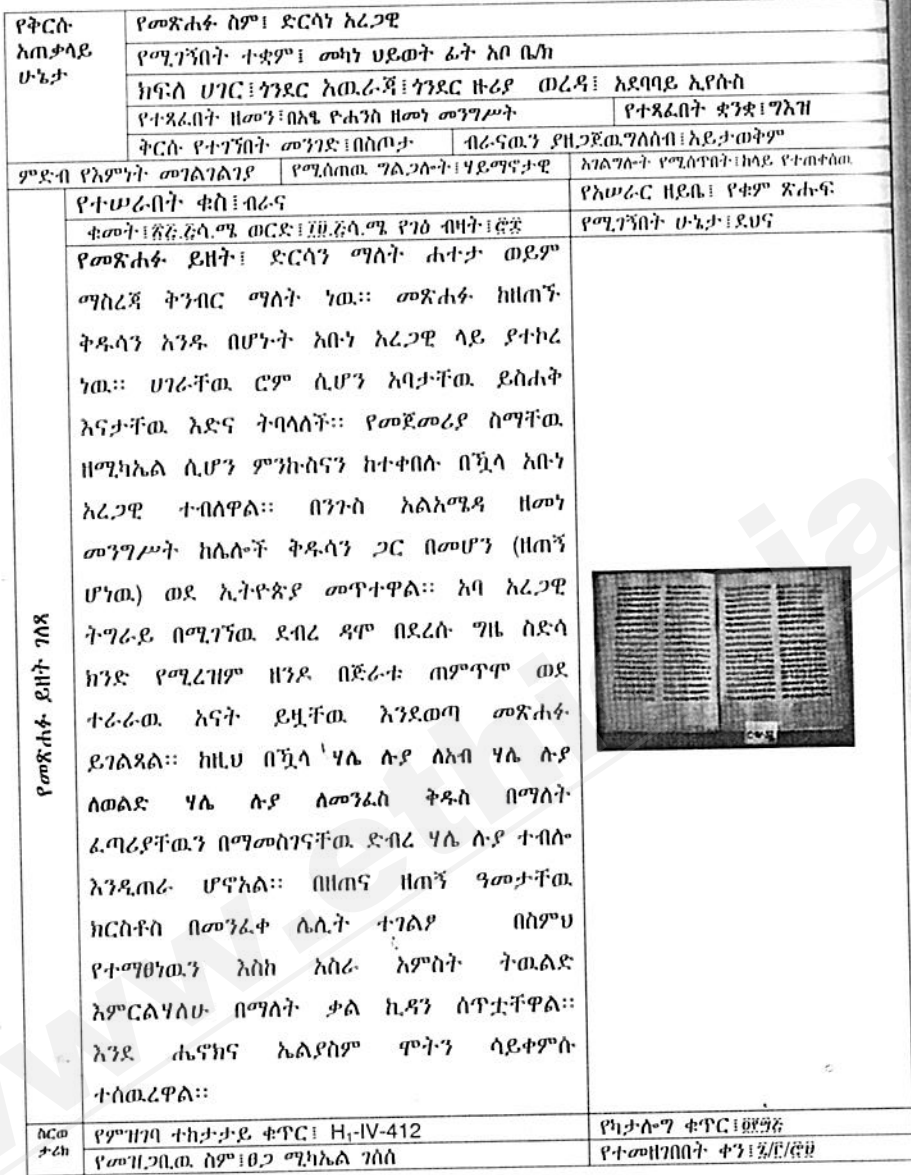 የቅርሱ አጠቃላይ ሁኔታ
የመጽሐፉ ስም፤ ድርሳነ አረጋዊ
የሚገኝበት ተቋም፤ መካነ ህይወት ፊት አቦ ቤ/ክ
ክፍለ ሀገር፤ጎንደር አዉራጃ፤ጎንደር ዙሪያ ወረዳ፤ አደባባይ ኢየሱስ
የተጻፈበት ዘመን፤በአፄ ዮሐንስ ዘመነ መንግሥት የተጻፈበት ቋንቋ፤ግእዝ
ቅርሱ የተገኘበት መንገድ፤በስጦታ ብራናዉን ያዘጋጀዉግለሰብ፤አይታወቅም
ምድብ የእምነት መገልገልገያ የሚሰጠዉ ግልጋሎት፤ሃይማኖታዊ አገልግሎት የሚሰጥበት፤ከላይ የተጠቀሰዉ
የተሠራበት ቁስ፤ብራና የአሠራር ዘይቤ፤ የቁም ጽሑፍ
ቁመት ሳ.ሜ ወርድ ሳ.ሜ የገፅ ብዛት የሚገኝበት ሁኔታ፤ደህና
የመጽሐፉ ይዘት ገለጻ
የመጽሐፉ ይዘት፤ ድርሳን ማለት ሐተታ ወይም
ማስረጃ ቅንብር ማለት ነዉ። መጽሐፉ ከዘጠኙ
ቅዱሳን አንዱ በሆኑት አቡነ አረጋዊ ላይ ያተኮረ
ነዉ። ሀገራቸዉ ሮም ሲሆን አባታቸዉ ይስሐቅ
እናታቸዉ እድና ትባላለች። የመጀመሪያ ስማቸዉ
ዘሚካኤል ሲሆን ምንኩስናን ከተቀበሉ በኂላ አቡነ
አረጋዊ ተብለዋል። በንጉስ አልአሜዳ ዘመነ
መንግሥት ከሌሎች ቅዱሳን ጋር በመሆን (ዘጠኝ
ሆነዉ) ወደ ኢትዮጵያ መጥተዋል። አባ አረጋዊ
ትግራይ በሚገኘዉ ደብረ ዳሞ በደረሱ ግዜ ስድሳ
ክንድ የሚረዝም ዘንዶ በጅራቱ ጠምጥሞ ወደ
ተራራዉ አናት ይዟቸዉ እንደወጣ መጽሐፉ
ይገልጻል። ከዚህ በኂላ ሃሌ ሉያ ለአብ ሃሌ ሉያ
ለወልድ ሃሌ ሉያ ለመንፈስ ቅዱስ በማለት
ፈጣሪያቸዉን በማመስገናቸዉ ድብረ ሃሌ ሉያ ተብሎ
እንዲጠራ ሆኖአል። በዘጠና ዘጠኝ ዓመታቸዉ
ክርስቶስ በመንፈቀ ሌሊት ተገልፆ በስምህ
የተማፀነዉን እስከ አስራ አምስት ትዉልድ
እምርልሃለሁ በማለት ቃል ኪዳን ሰጥቷቸዋል።
እንደ ሔኖክና ኤልያስም ሞትን ሳይቀምሱ
ተሰዉረዋል።
ስርወ ታሪክ
የምዝገባ ተከታታይ ቁጥር፤ H₁-IV-412 የካታሎግ ቁጥር
የመዝጋቢዉ ስም፤ፀጋ ሚካኤል ገሰሰ የተመዘገበበት ቀን
www.ethi